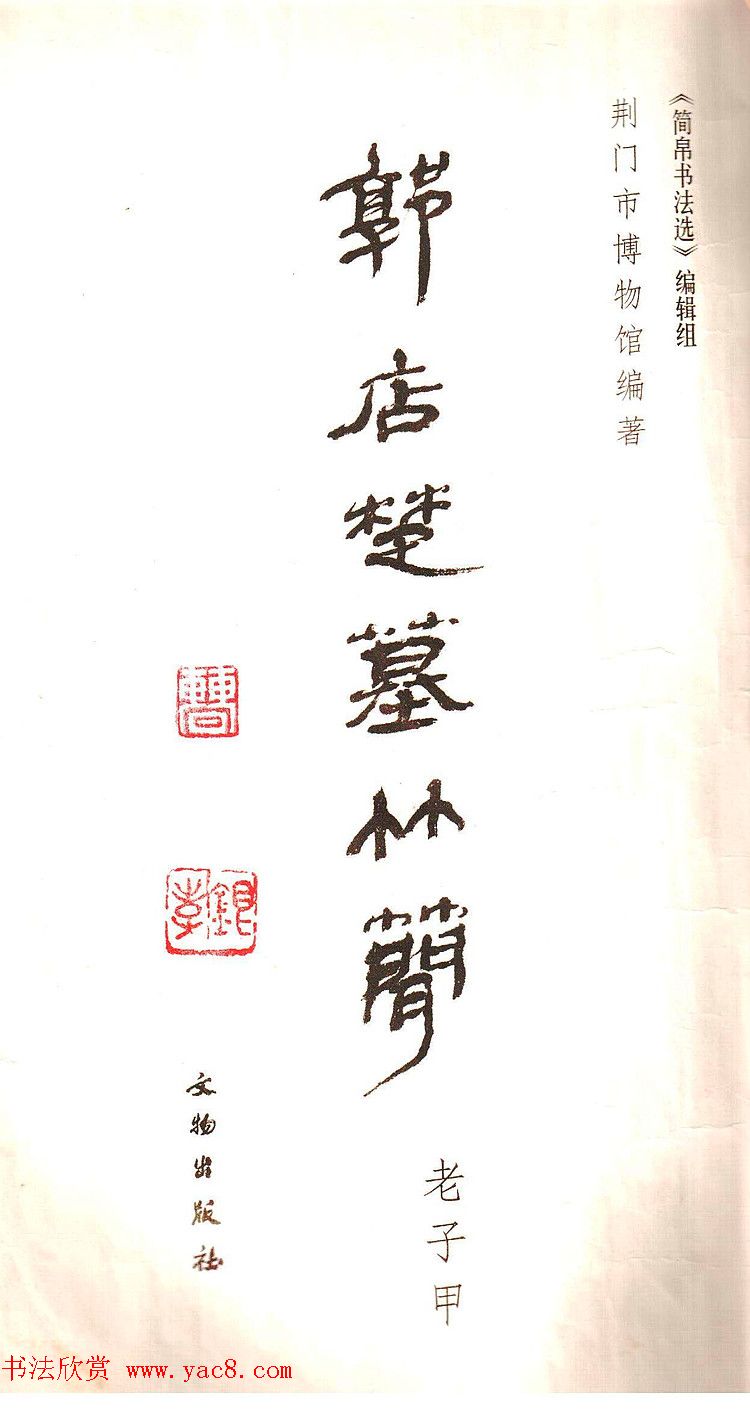 《简帛书法选》编辑组
荆门市博物馆编著
郭店楚墓竹簡
老子甲
文物出版社
书法欣赏 www.yac8.com